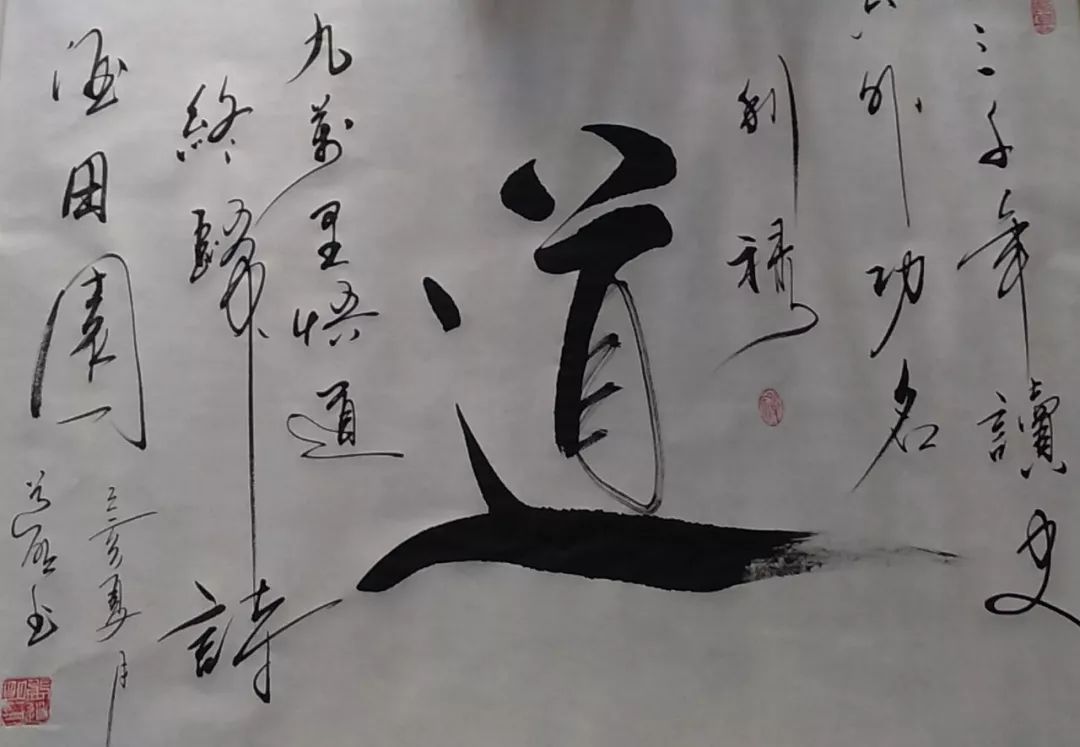 三千年讀史
不外功名
利祿
道
九萬里悟道
終歸詩
酒田園
己亥夏月
書